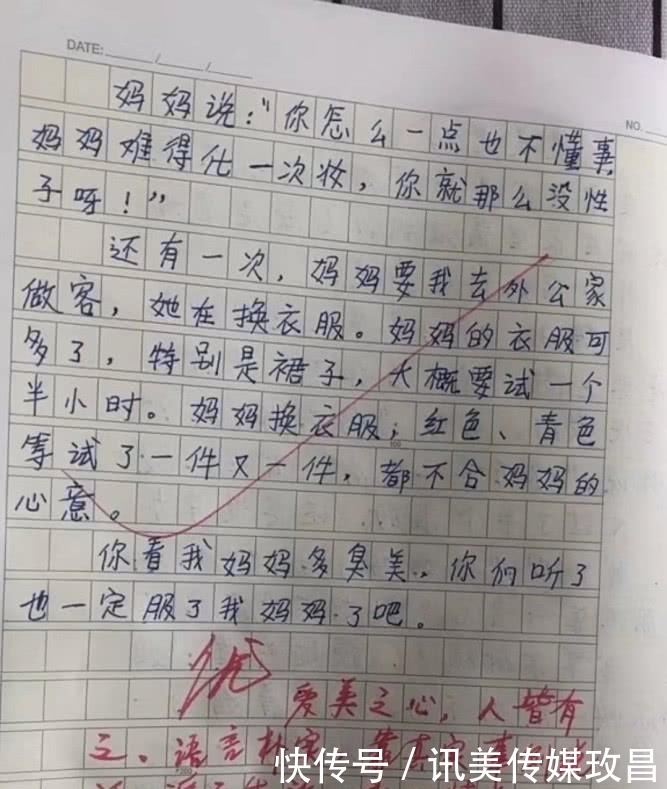 DATE: / /
NO.
妈妈说:“你怎么一点也不懂事,
妈妈难得化一次妆,你就那么没性
子呀!”
还有一次,妈妈要我去外公家
做客,她在换衣服。妈妈的衣服可
多了,特别是裙子,大概要试一个
半小时。妈妈换衣服,红色、青色
等试了一件又一件,都不合妈妈的
心意。
你看我妈妈多臭美,你们听了
也一定服了我妈妈了吧。
优
爱美之心,人皆有
之、语言朴实
快传号/讯美传媒玫昌